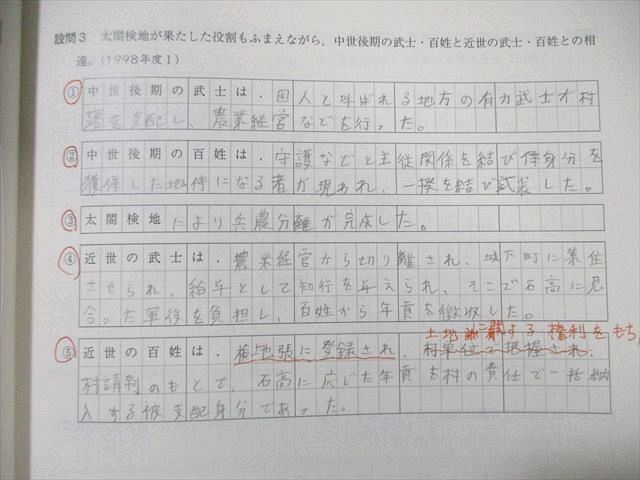 設問3 太閤検地が果たした役割もふまえながら,中世後期の武士・百姓と近世の武士・百姓との相
違。(1998年度Ⅰ)
① 中世後期の武士は,国人と呼ばれる地方の有力武士が村
落を支配し、農業経営などを行った。
② 中世後期の百姓は,守護などと主従関係を結び侍身分を
獲得した地侍になる者が現われ、一揆を結び武装した。
③ 太閤検地により兵農分離が完成した。
④ 近世の武士は,農業経営から切り離され、城下町に集住
させられ、給与として知行を与えられ、そこで石高に見
合った軍役を負担し、百姓から年貢を徴収した。
土地に関する権利をもち,
⑤ 近世の百姓は,検地張に登録され、村単位で把握され,
村請制のもとで、石高に応じた年貢を村の責任で一括納
入する被支配身分であった。